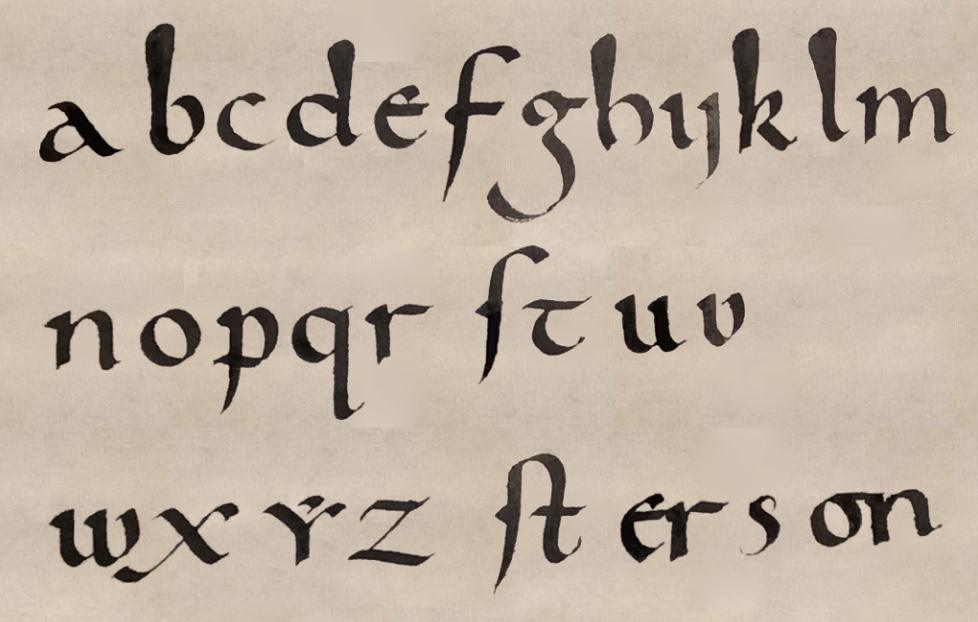 a b c d e f g h i j k l m
n o p q r ſ t u v
w x y z ſt er s on